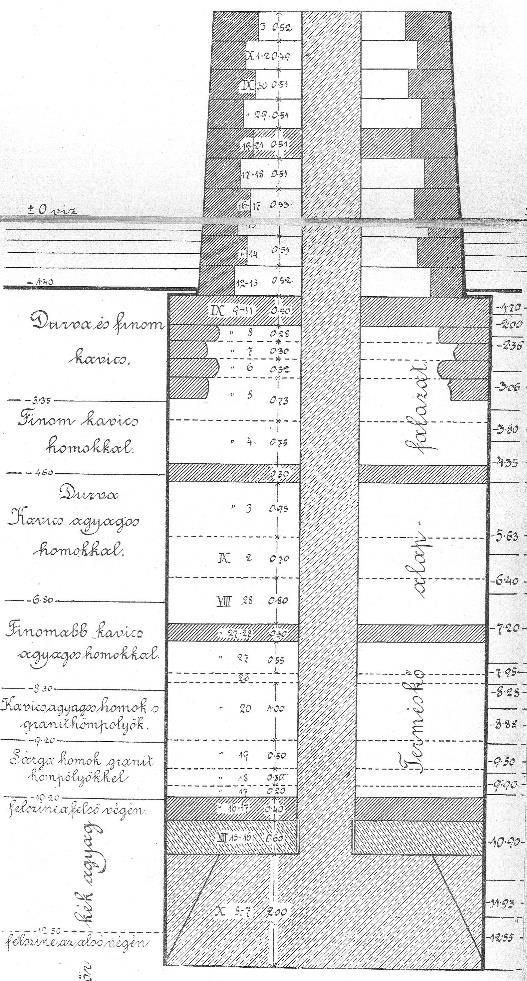 3 0.52
IX 1-2 0.49
IX 30 0.51
" 29 0.51
0.51
17-18 0.51
± 0 víz
0.53
14 0.51
12-13 0.52
-1.70
IX 9-11 0.50
-1.70
-2.00
Durva és finom
kavics.
" 8 0.28
" 7 0.30
-2.36
" 6 0.32
-3.06
" 5 0.73
-3.35
Finom kavics
homokkal.
-3.80
" 4 0.75
-4.35
-4.60
0.30
Durva
Kavics agyagos
homokkal.
" 3 0.95
-5.63
IX 2 0.70
-6.40
VIII 28 0.80
-6.80
Finomabb kavics
agyagos homokkal.
" 27-28 0.30
-7.20
" 27 0.55
-7.95
26
-8.28
-8.30
Kavics agyagos homok s
gránit hömpölyök.
" 20 1.00
-8.88
-9.20
Sárga homok gránit
hömpölyökkel
" 19 0.50
-9.50
" 18 0.30
" 17 0.20
-9.90
-10.20
felszíne a felső végén.
" 16-17 0.40
XII 15-16 0.60
-10.90
kék agyag
X 5-7 2.00
-11.93
-12.30
felszíne az alsó végén
-12.55
Termiskő alap-falazat